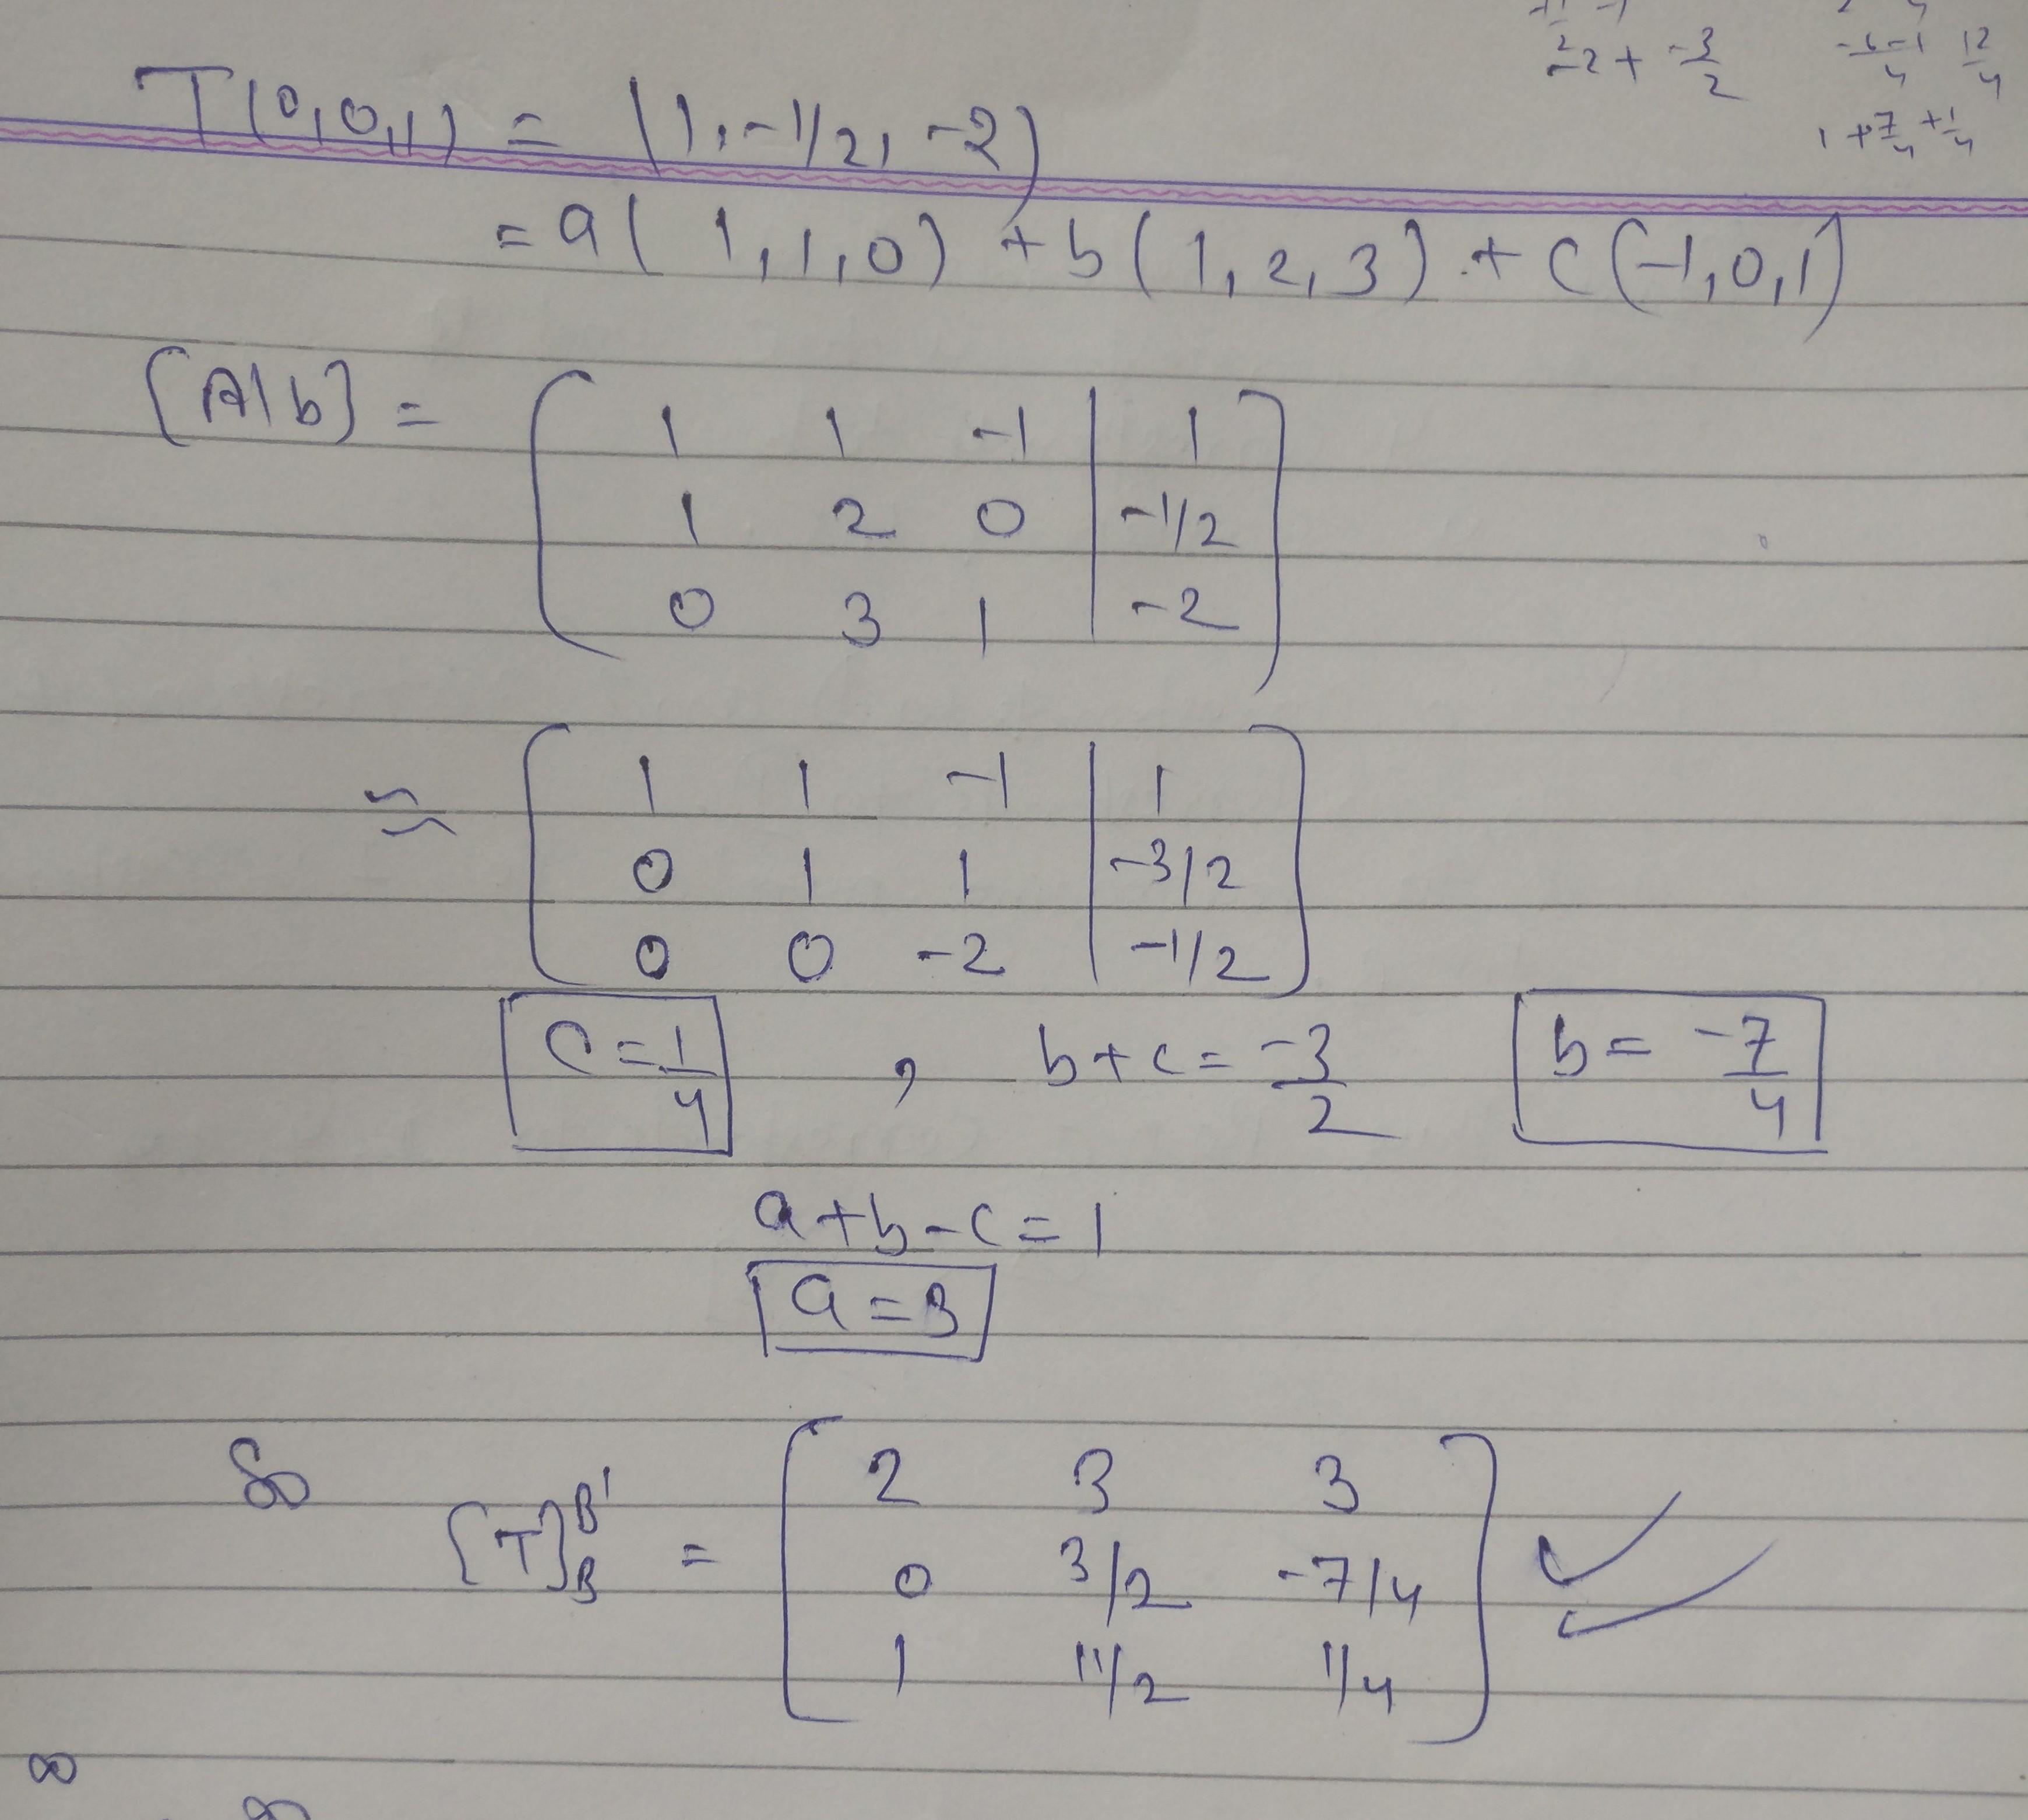 -2 + -3/2
-6-1/4 12/4
1 + 7/4 + 1/4
T(0,0,1) = (1, -1/2, -2)
= a(1,1,0) + b(1,2,3) + c(-1,0,1)
[A|b] =
1 1 -1 | 1
1 2 0 | -1/2
0 3 1 | -2
≃
1 1 -1 | 1
0 1 1 | -3/2
0 0 -2 | -1/2
c = 1/4 , b+c = -3/2 b = -7/4
a+b-c = 1
a = 3
So [T]_B^B' =
2 3 3
0 3/2 -7/4
1 11/2 1/4